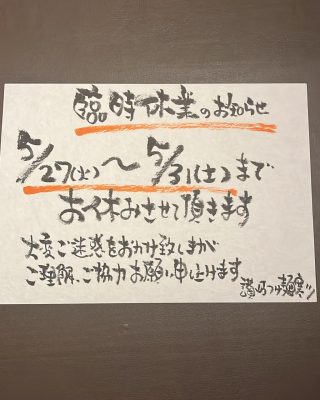 臨時休業のお知らせ
5/27(火)～5/31(土)まで
お休みさせて頂きます
大変ご迷惑をおかけ致しますが
ご理解、ご協力お願い申し上げます
讃岐つけ麺寒ツ